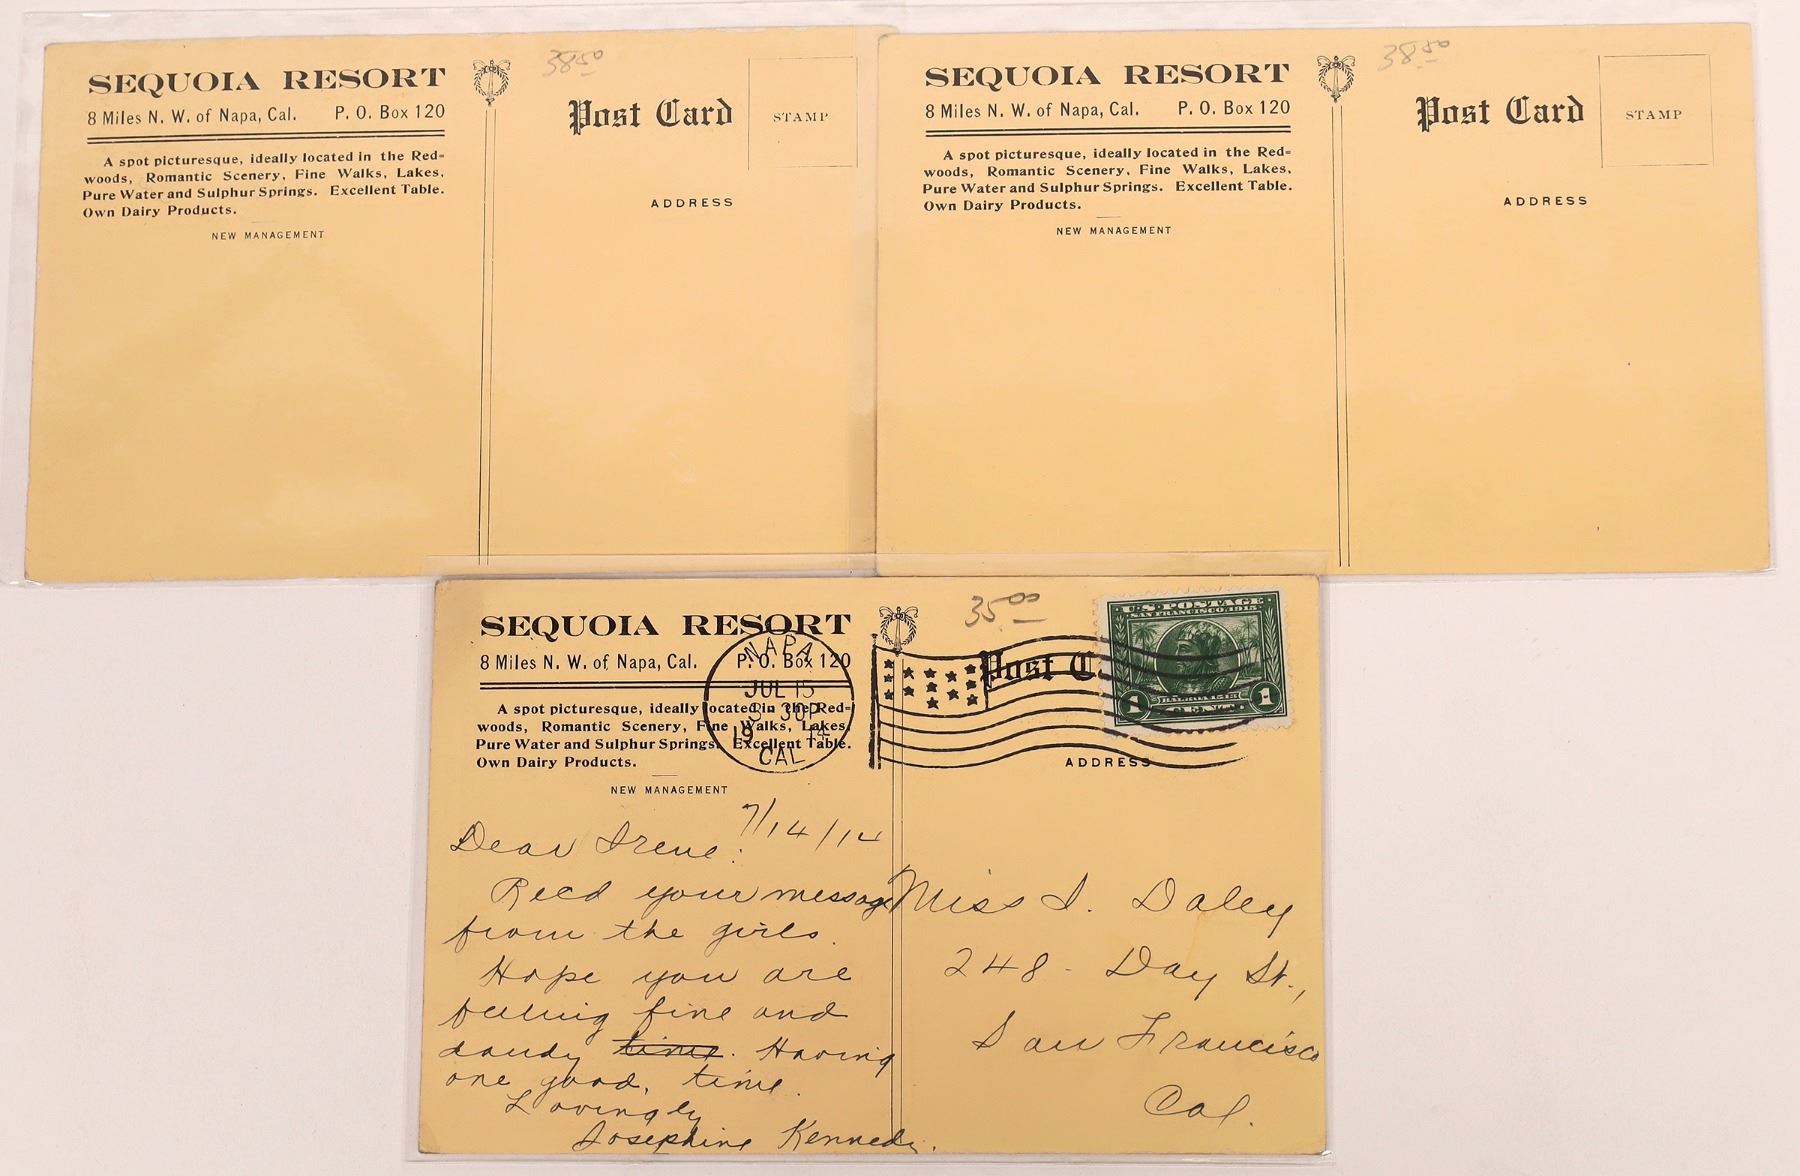 SEQUOIA RESORT
8 Miles N. W. of Napa, Cal. P. O. Box 120
A spot picturesque, ideally located in the Red=
woods, Romantic Scenery, Fine Walks, Lakes,
Pure Water and Sulphur Springs. Excellent Table.
Own Dairy Products.
NEW MANAGEMENT
38.50
Post Card
STAMP
ADDRESS
SEQUOIA RESORT
8 Miles N. W. of Napa, Cal. P. O. Box 120
A spot picturesque, ideally located in the Red=
woods, Romantic Scenery, Fine Walks, Lakes,
Pure Water and Sulphur Springs. Excellent Table.
Own Dairy Products.
NEW MANAGEMENT
38.50
Post Card
STAMP
ADDRESS
SEQUOIA RESORT
8 Miles N. W. of Napa, Cal. P. O. Box 120
A spot picturesque, ideally located in the Red=
woods, Romantic Scenery, Fine Walks, Lakes,
Pure Water and Sulphur Springs. Excellent Table.
Own Dairy Products.
NEW MANAGEMENT
NAPA
JUL 15
3 30P
19 14
CAL
35.00
Post C
U.S. POSTAGE
SAN FRANCISCO, 1915
BALBOA 1513
1 CENT 1
ADDRESS
7/14/14
Dear Irene:
Recd your message
from the girls.
Hope you are
feeling fine and
dandy time. Having
one good, time.
Lovingly
Josephine Kennedy.
Miss I. Daley
248 - Day St.,
San Francisco
Cal.